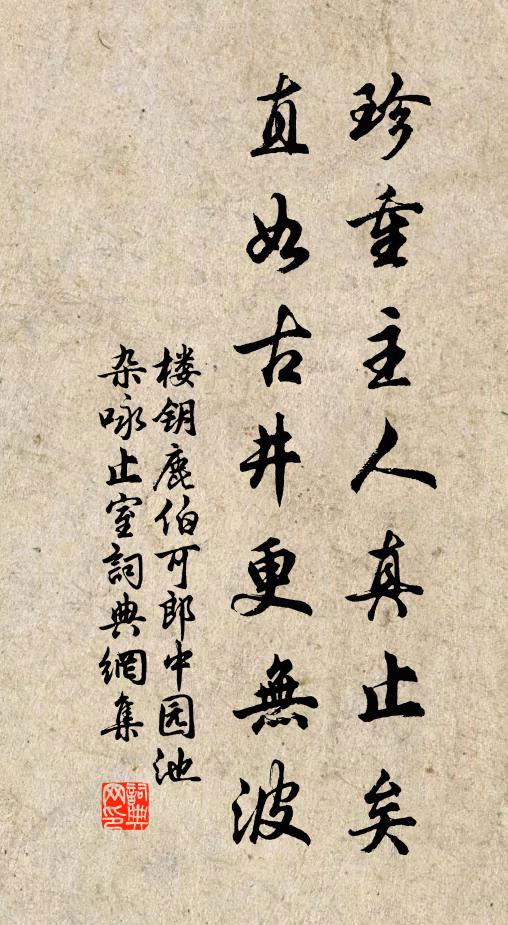 珍重主人真止矣
直如古井更無波
楼钥鹿伯可郎中园池
杂咏止室詞典網集
詞典网印